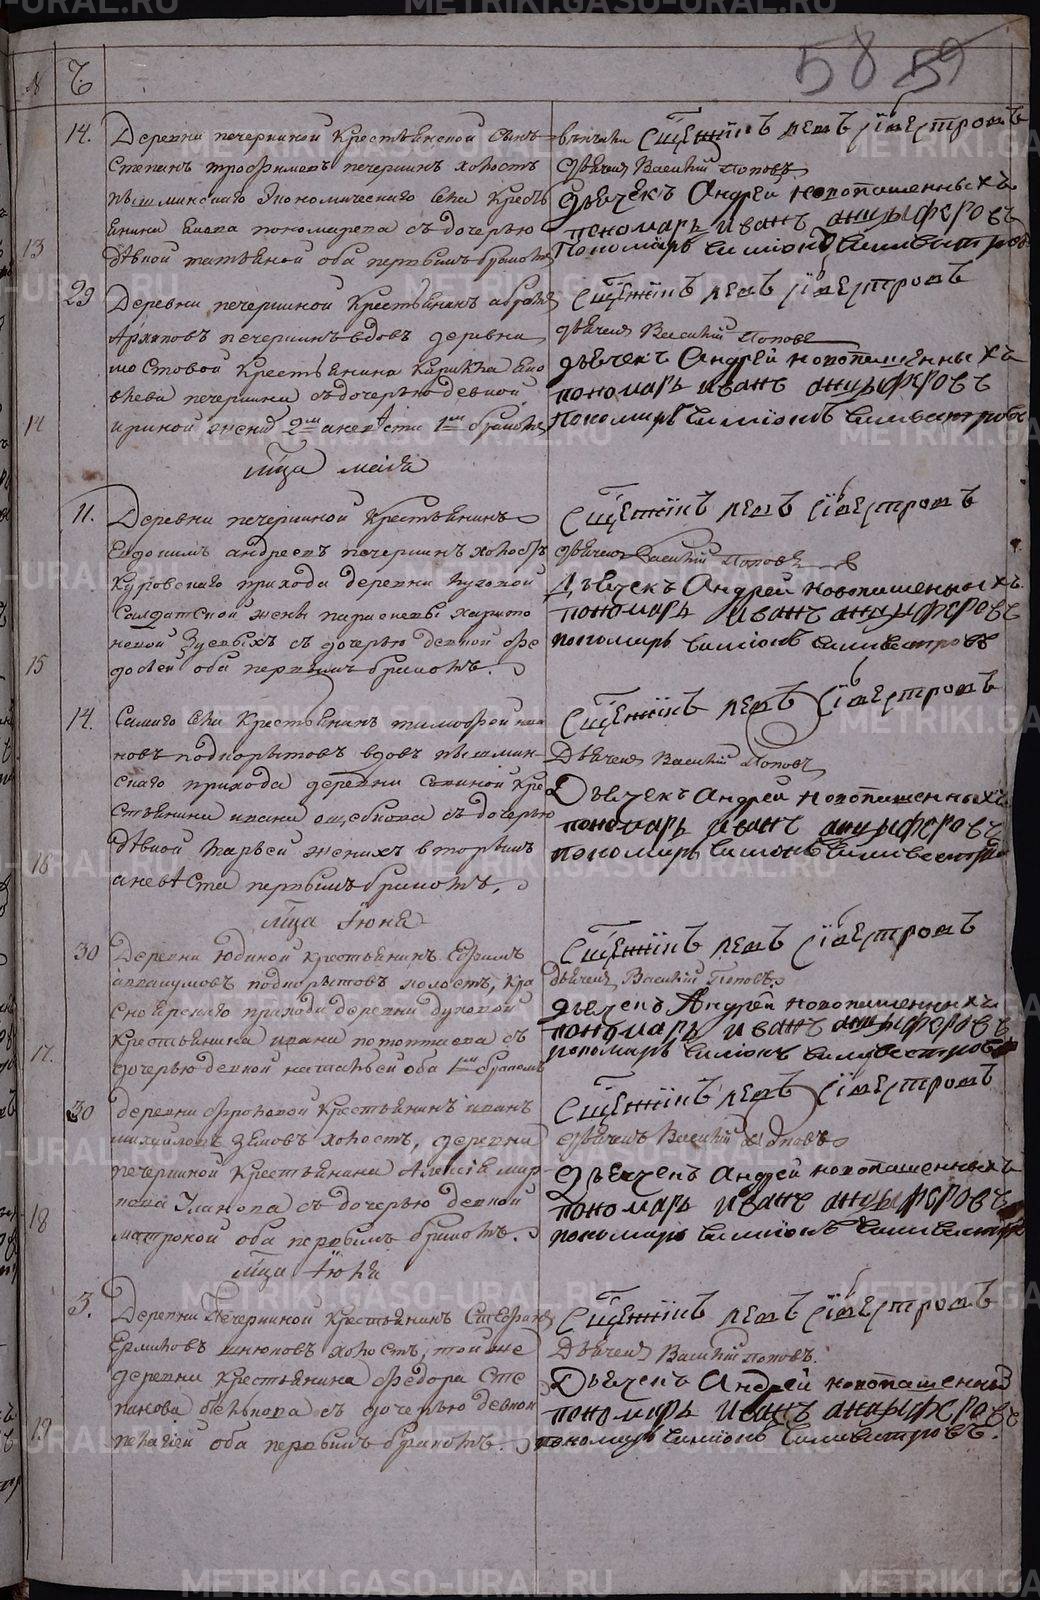 58 59
№ Ч
14. Деревни печеркиной крестьянской сынъ
Степанъ трофимовъ печеркинъ холостъ
пышминского Экономического села кресть
янина пономарева съ дочерью
13 девкой татьяной оба первымъ бракомъ
венчали Сщенникъ левъ Сілвестровъ
дьячекъ Василий Поповъ
дьячекъ Андрей новопашенныхъ
пономарь Иванъ анцыферовъ
Пономарь Симионъ Силвестровъ
29 Деревни печеркиной Крестьянинъ
Архиповъ печеркинъ вдовъ деревни
мостовой Крестьянина Кирилы
печеркина съ дочерью девкой
14 ириной женихъ 2мъ а невеста 1мъ бракомъ
Сщенникъ левъ Сілвестровъ
дьячекъ Василий Поповъ
дьячекъ Андрей новопашенныхъ
пономарь иванъ анцыферовъ
пономарь Симионъ Силвестровъ
мца маия
11. Деревни печеркиной Крестьянинъ
Евдокимъ андреевъ печеркинъ холостъ
Куровского прихода деревни
Салдатской жены парасковьи харито
новой Зуевыхъ съ дочерью девкой фе
15 досьей оба первымъ бракомъ.
Сщенникъ левъ Сілвестровъ
дьячекъ Василий Поповъ
Дьячекъ Андрей новопашенныхъ
пономарь Иванъ анцыферовъ
пономарь Симионъ Силвестровъ
14. Самаго села Крестьянинъ тимофей ива
новъ подкорытовъ вдовъ пышмин
скаго прихода деревни Кре
стьянина ивана съ дочерью
девкой Марьей женихъ вторымъ
16 а невеста первымъ бракомъ.
Сщенникъ левъ Сілвестровъ
Дьячекъ Василий Поповъ
Дьячекъ Андрей новопашенныхъ
пономарь иванъ анцыферовъ
пономарь Симионъ Силвестровъ
мца Іюня
30 Деревни юдиной крестьянинъ Ефимъ
аввакумовъ подкорытовъ холостъ, кра
сноярского прихода деревни духовой
Крестьянина ивана потоптаева съ
17. дочерью девкой натальей оба 1мъ бракомъ
Сщенникъ левъ Сілвестровъ
дьячекъ Василий Поповъ.
дьячекъ Андрей новопашенныхъ
пономарь иванъ анцыферовъ
пономарь Симионъ Силвестровъ
30 деревни фроховой Крестьянинъ иванъ
михайловъ Земовъ холостъ, деревни
печеркиной крестьянина Алексея мир
нова Уланова съ дочерью девкой
18 матроной оба первымъ бракомъ.
Сщенникъ левъ Сілвестровъ
дьячекъ Василий Поповъ
дьячекъ Андрей новопашенныхъ
пономарь Иванъ анцыферовъ
пономарь Симионъ Силвестровъ
мца Іюля
3. Деревни Печеркиной Крестьянинъ Стефанъ
Ермиловъ шнюковъ холостъ, той же
деревни крестьянина федора Сте
панова белькова съ дочерью девкой
19 пелагией оба первымъ бракомъ.
Сщенникъ левъ Сілвестровъ
Дьячекъ Василий Поповъ.
Дьячекъ Андрей новопашенных
пономарь Иванъ анцыферовъ
пономарь Симионъ Силвестровъ.
METRIKI.GASO-URAL.RU